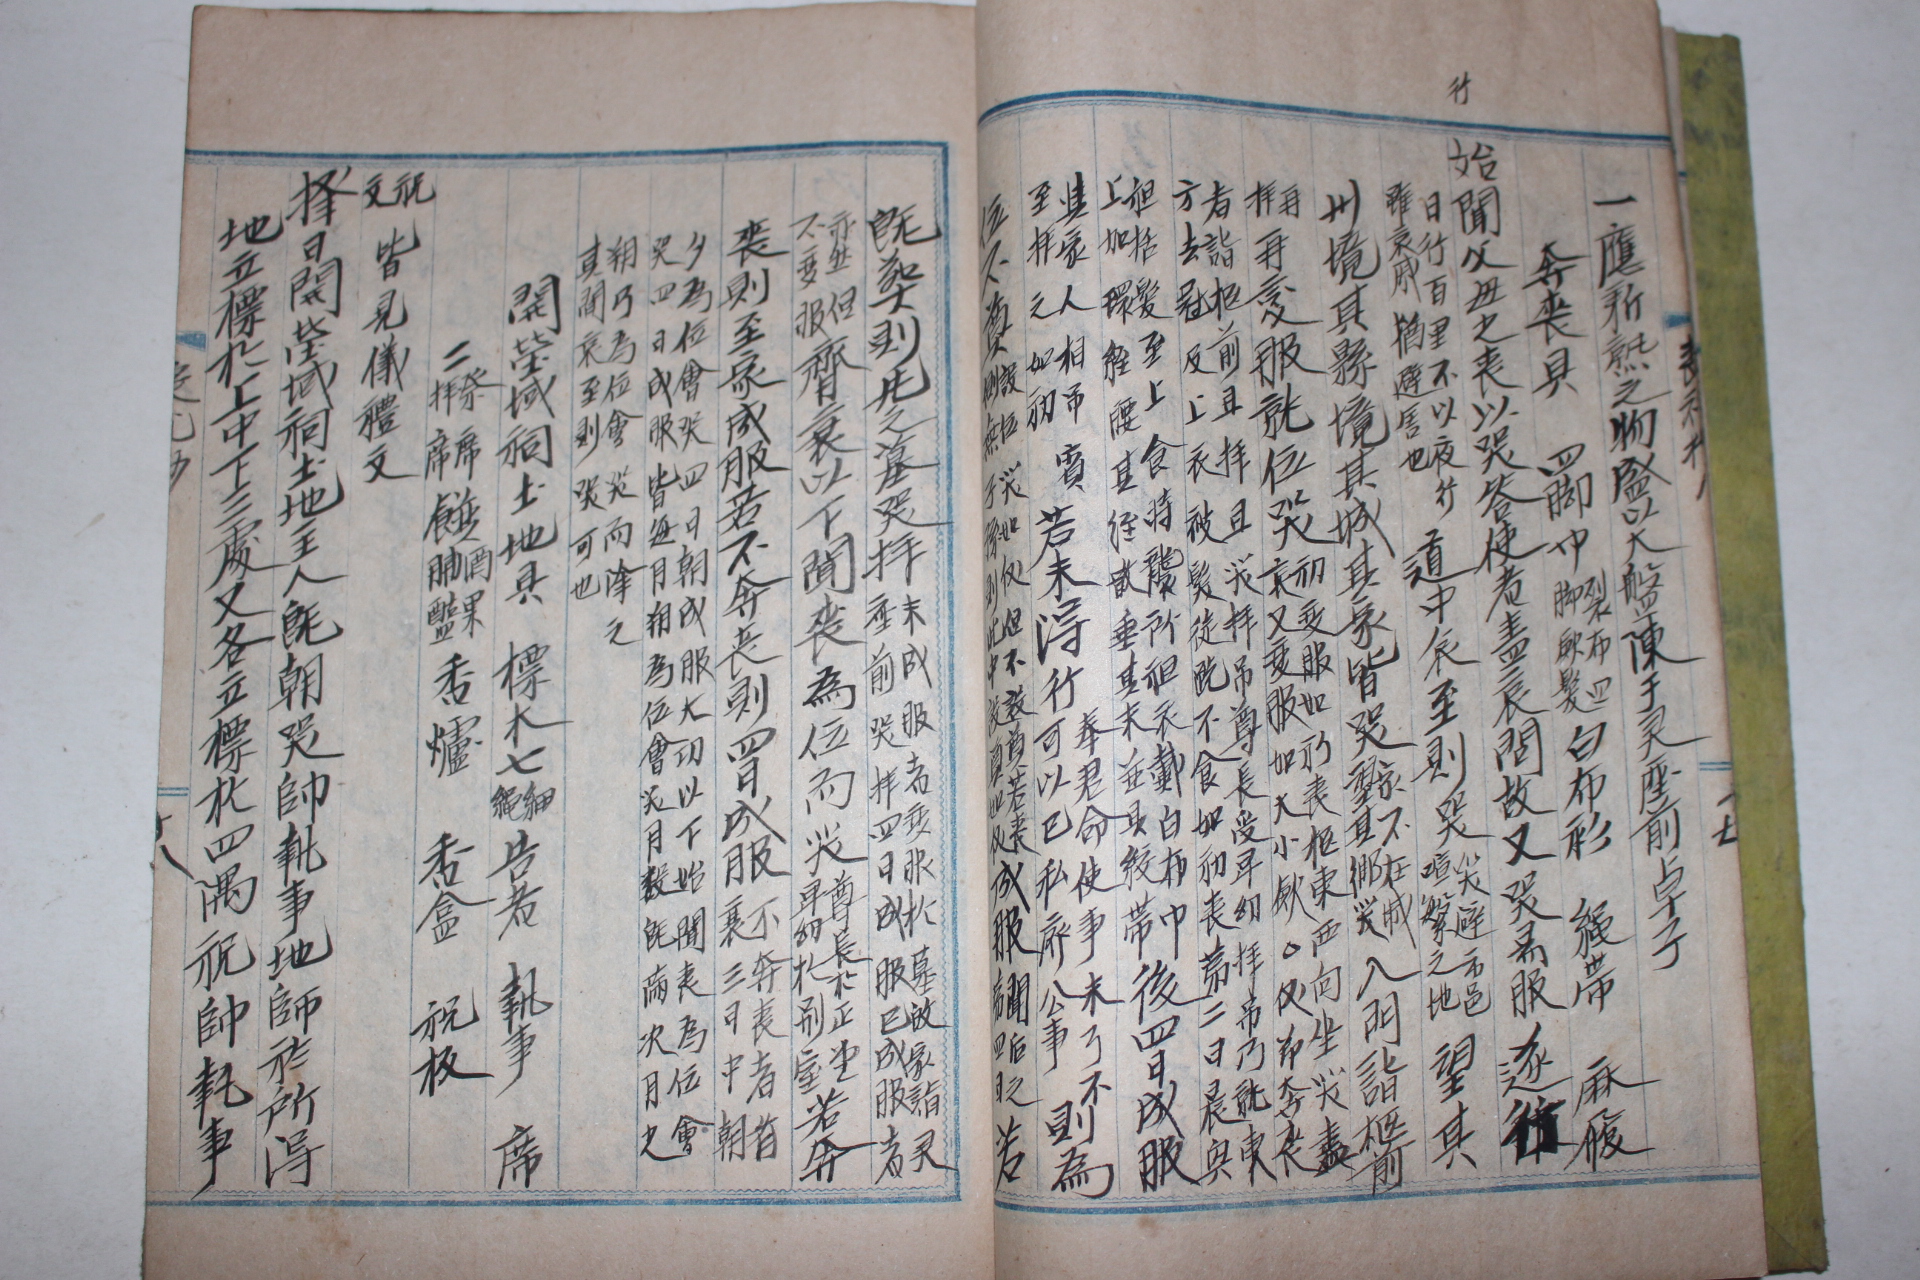 行
一應新熟之物盛以大盤陳于灵座前卓子
奔喪具 四脚巾 裂布四脚歛髮 白布衫 繩帶 麻履
始聞父母之喪以哭答使者盡哀問故又哭易服遂行
日行百里不以夜行雖哀戚猶避害也 道中哀至則哭 哭避市邑喧繁之地 望其
州境其縣境其城其家皆哭 家不在城望其鄉哭 入門詣柩前
再拜再変服就位哭 初変服如初喪柩東西向坐哭盡哀又変服如大小歛○仪節奔喪
者詣柩前且拜且哭拜吊尊長受卑幼拜吊乃就東方去冠及上衣被髮徒跣不食如初喪第二日晨興
袒括髮至上食時襲所袒衣戴白布巾上加環絰腰其絰散垂其末並具絞帶 後四日成服
與家人相吊賓至拜之如初 若未得行 奉君命使事未了不可以己私廢公事 則為
位不奠 設位哭如仪但不設奠若喪側無子孫則此中設奠如仪 成服 聞后之第四日 若
既葬則先之墓哭拜 未成服者変服於墓故家詣灵座前哭拜四日成服已成服者
亦然但不変服 齊衰以下聞喪為位而哭 尊長於正堂卑幼於别室 若奔
喪則至家成服若不奔喪則四日成服 不奔喪者齊衰三日中朝
夕為位會哭四日朝成服大功以下始聞喪為位會哭四日成服皆每月朔為位會哭月数既滿次月之
朔乃為位會哭而除之其間哀至則哭可也
開塋域祠土地具 標木七 細繩 告者 執事 席
二 祭席拜席 饌 酒果脯醢 香爐 香盒 祝板
祝文 皆見儀禮文
擇日開塋域祠土地主人既朝哭帥執事地師於所得
地立標於上中下三處又各立標於四隅祝帥執事
十八